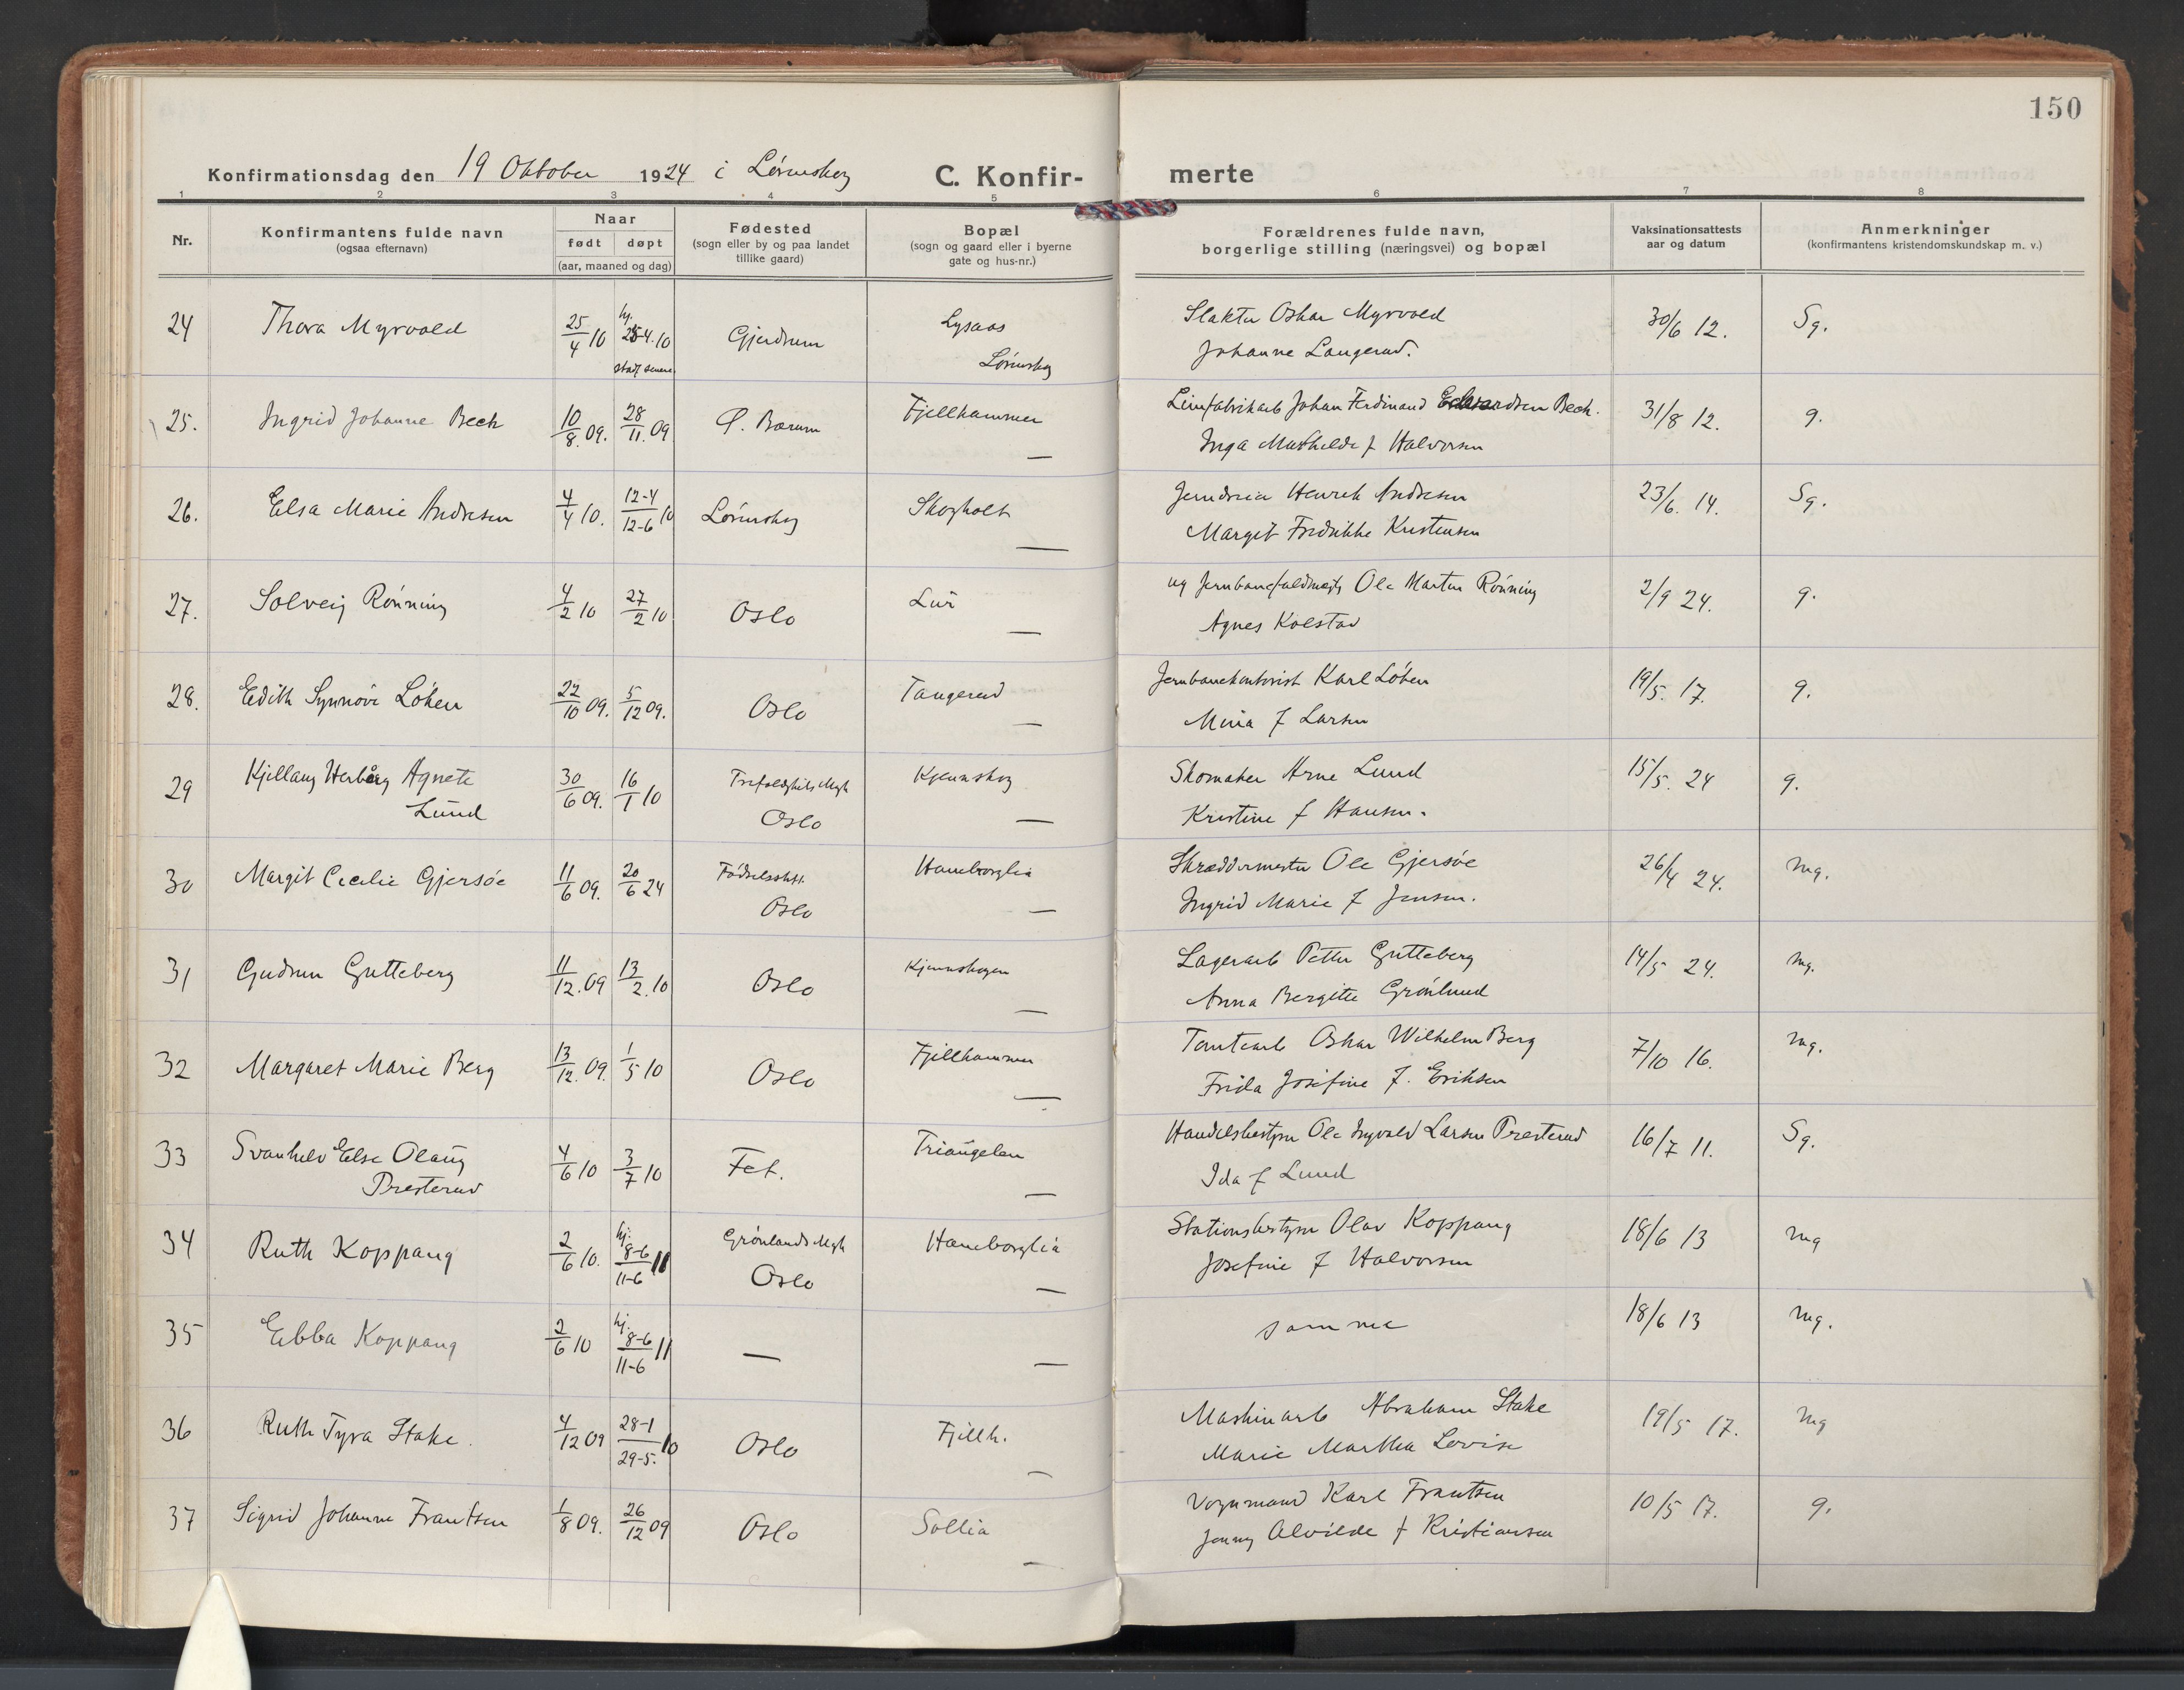 150
Konfirmationsdag den 19 Oktober 1924 i Lørenskog C. Konfir- merte
1 2 3 4 5 6 7 8
Nr.
Konfirmantens fulde navn
(ogsaa efternavn)
Naar
født døpt
(aar, maaned og dag)
Fødested
(sogn eller by og paa landet
tillike gaard)
Bopæl
(sogn og gaard eller i byerne
gate og hus-nr.)
Forældrenes fulde navn,
borgerlige stilling (næringsvei) og bopæl
Vaksinationsattests
aar og datum
Anmerkninger
(konfirmantens kristendomskundskap m. v.)
24 Thora Myrvold 25/4 10 hj. 25-4.10 Gjerdrum Lysaas Slakter Oskar Myrvold 30/6 12. Sg.
Lørenskog Johanne Langerud.
25. Ingrid Johanne Bech 10/8. 09. 28/11. 09 Ø. Bærum Fjellhammer Limfabrikarb Johan Ferdinand Bech. 31/8 12. g.
— Inga Mathilde f Halvorsen
26. Elsa Marie Andresen 4/4 10. 12-4/12-6 10 Lørenskog Skogholt Jerndreier Henrik Andresen 23/6. 14. Sg.
— Margit Fredrikke Kristensen
27. Solveig Rønning 4/2 10 27/2 10 Oslo Lur Ole Martin Rønning 2/9 24. g.
— Agnes Kolstad
28. Edith Synnøve Løken 22/10 09. 5/12 09. Oslo Tangerud Jernbanekontorist Karl Løken 19/5. 17. g.
— Mina f Larsen
29 Kjellaug Herbårg Agnete 30/6 09. 16/1 10 Trefoldighets Mgh Kjennskog Skomaker Arne Lund 15/5. 24 g.
Lund Oslo — Kristine f Hansen.
30 Margit Cecilie Gjersøe 11/6 09. 20/6 24 Fødselsstift. Haneborglia Skræddermester Ole Gjersøe 26/4 24. mg.
Oslo — Ingrid Marie f Jensen.
31 Gudrun Gutteberg 11/12. 09 13/2. 10 Oslo Kjennskogen Lagerarb Petter Gutteberg 14/5 24. mg.
— Anna Bergitte Grønlund
32 Margaret Marie Berg 13/12. 09. 1/5 10 Oslo Fjellhammer Tomtearb Oskar Wilhelm Berg 7/10 16. mg.
— Frida Josefine f. Eriksen
33 Svanhild Else Olaug 4/6 10 3/7 10 Fet. Triangelen Handelsbestyrer Ole Ingvald Larsen Presterud 16/7 11. Sg.
Presterud — Ida f Lund
34 Ruth Koppang 2/6 10. hj. 8-6/11-6 11 Grønlands Mgh Haneborglia Stationsbestyrer Olav Koppang 18/6 13 mg
Oslo — Josefine f Halvorsen
35 Ebba Koppang 2/6 10 hj. 8-6/11-6 11 — — samme 18/6 13 mg.
36 Ruth Tyra Stake. 4/12 09 28-1/29-5. 10 Oslo Fjellh. Maskinarb Abraham Stake 19/5 17. mg
— Marie Martha Lovise
37 Sigrid Johanne Frantsen 1/8 09. 26/12 09 Oslo Sollia Vognmand Karl Frantsen 10/5 17. g.
— Jenny Alvilde f Kristiansen